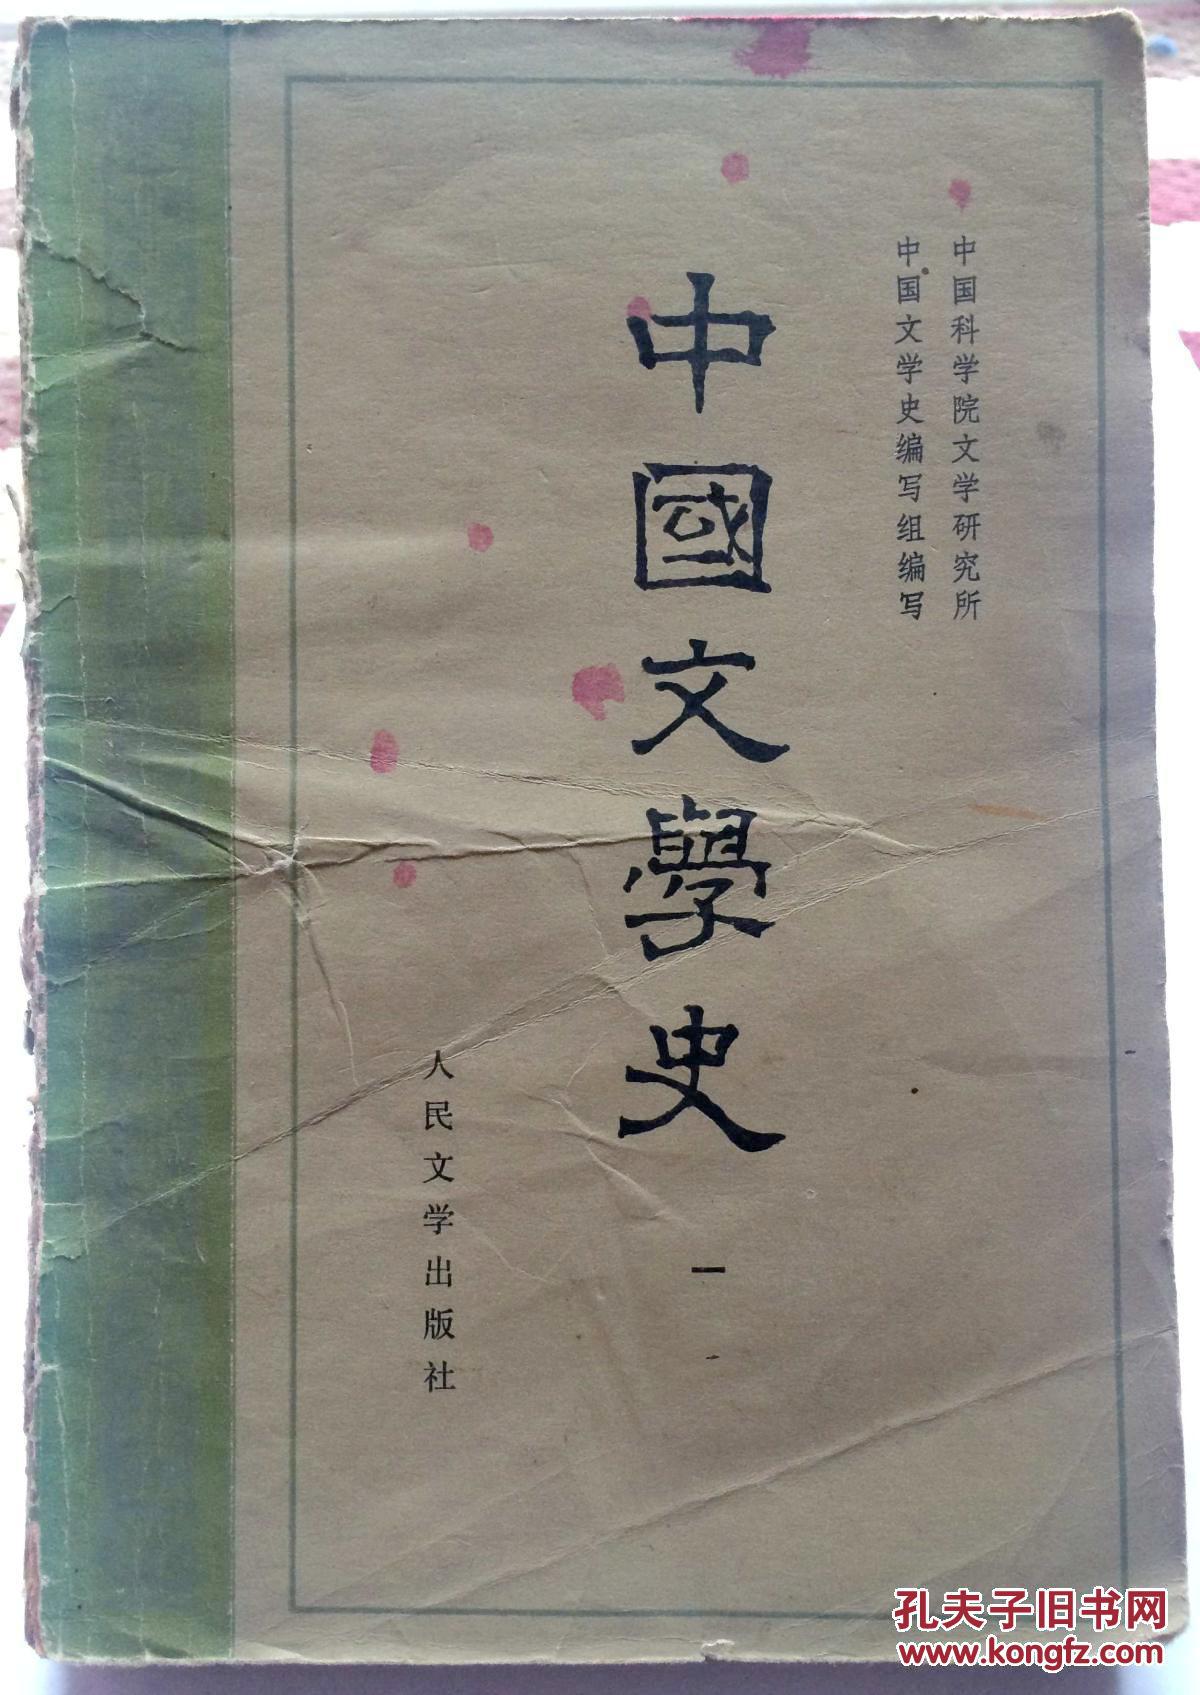 中国科学院文学研究所
中国文学史编写组编写
中國文學史
一
人民文学出版社
孔夫子旧书网
www.kongfz.com